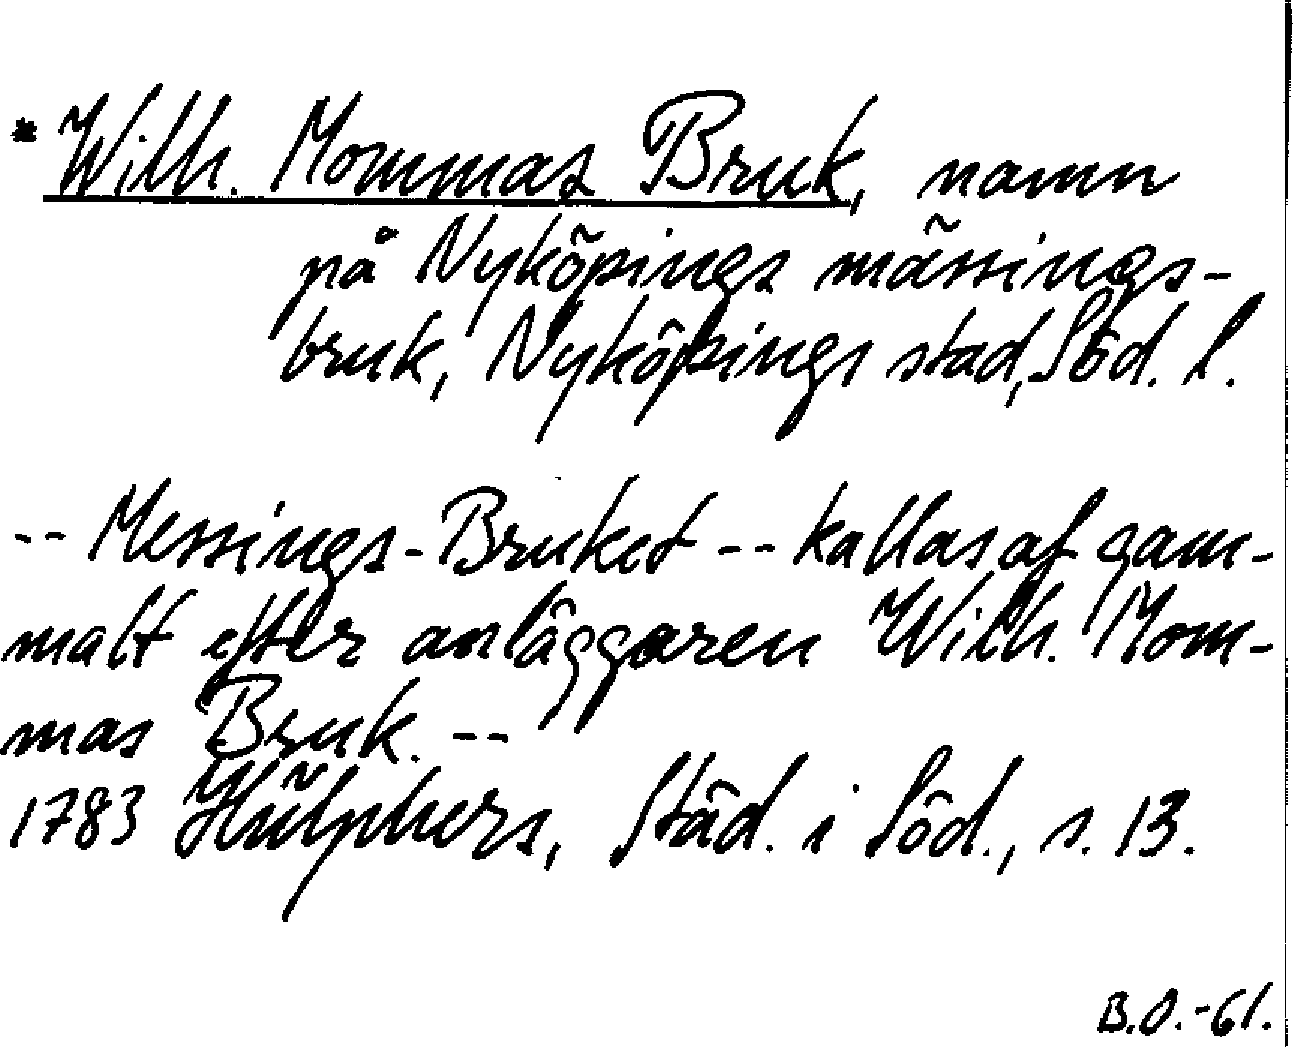 * Wilh. Mommas Bruk, namn
på Nyköpings mässings-
bruk, Nyköpings stad, Söd. l.
-- Messings-Bruket -- kallas af gam-
malt efter anläggaren Wilh. Mom-
mas Bruk. --
1783 Hülphers, Städ. i Söd., s. 13.
B.O.-61.